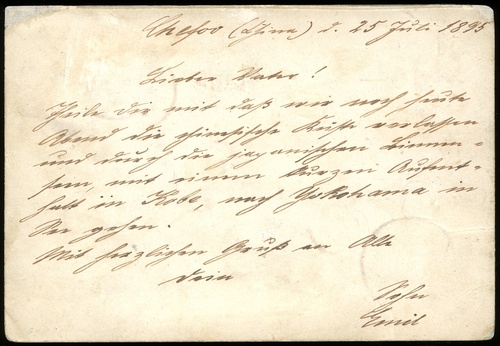 Chefoo (China) d. 25 Juli 1895
Lieber Vater!
Theile Dir mit daß wir noch heute
Abend die chinesische Küste verlassen
und durch die japanischen Binnen-
seen, mit einem kurzen Aufent-
halt in Kobe, nach Yokohama in
See gehen.
Mit herzlichen Gruß an Alle
Dein
Sohn
Emil